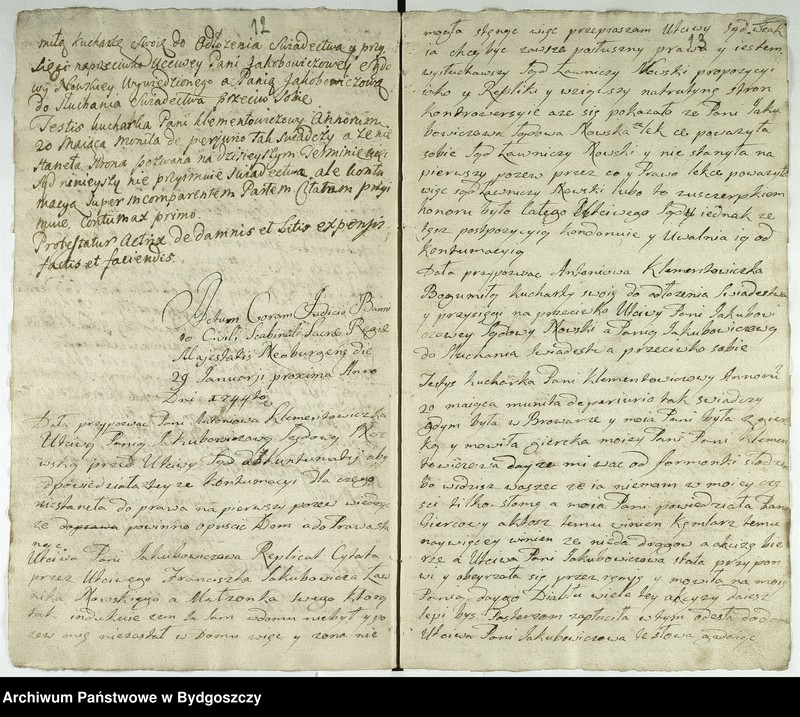 12
miłą kucharkę Swoię do Odłożenia Swiadectwa y przy
sięgi naprzeciwko Uczciwey Pani Jakobowiczowey
wy Nowskiey Uprzedzonego a Panią Jakobowiczową
do Słuchania Swiadectwa przeciw Sobie
Testis kucharka Pani klementowiczowy Annorum
20 maiąca munita de periurio tak swiadczy a że nie
Staneła Strona pozwana na dzisieyszym Terminie więc
Sąd ninieyszy nie przyimuie swiadectwa ale kontu
macyą Super incomparentem Partem Citatam przyi
muie Contumax primo
Protestatur Actrix de damnis et Litis expensis
factis et faciendis
Actum Coram Judicio Bann
to Civili Scabinali Sacræ Regiæ
Majestatis Neoburgensi die
29 Januarji proxima Anno
Dni 1744to
Dała przypozwac Pani Antonowa Klementowiczka
Uczciwą Panią Jakubowiczową Sędową
wską przed Uczciwy Sąd ad kontumatij aby
odpowiedziała się ze kontumacyi dla czego
niestaneła do prawa na pierwszy pozew wiedząc
ze powinno opuscic Dom a do Prawa sta
nąc
Uczciwa Pani Jakubowiczowa Replicat Cytata
przez Uczciwego Franciszka Jakubowicza Ław
nika Nowskiego a Małzonka Swego ktory
tak indukuie zem ia sam wdomu niebył y po
zew mię niezastał w Domu więc y zona nie
13
mogła stanąc więc przepraszam Uczciwy Sąd
ia chcę byc zawsze posłuszny prawu y iestem
wysłuchawszy Sąd Ławniczy Nowski propozycyi
iako y Repliki y wziąwszy natrutynę stron
kontrowersyie aze się pokazało ze Pani Jaku
bowiczowa Sędowa Nowska lek ce poważyła
sobie Sąd Ławniczy Nowski y nie staneła na
pierwszy pozew przez co y Prawo lekce powazyła
więc Sąd Ławniczy Nowski lubo to zuszczerpkiem
honoru było całego Uczciwego Sądu iednak ze
tęsz postpozycyią kondonuie y Uwalnia ią od
kontumacyią
Dała przypozwac Antoniowa Klementowiczka
Bogumiłę kucharkę swoię do odłozenia Swiadectwa
y przysięgi na przeciwko Uczciwy Pani Jakubow
iczowey Sędowy Nowski a Panią Jakubowiczową
do Słuchania Swiadectwa przeciwko sobie
Testys kucharka Pani Klementowiczowy Annorũ
20 maiąca munita de periurio tak swiadczy
gdym była w Browarze y moia Pani była z gier
ką y mowiła giercka moiey Pani Pani klemen
towiczewa dayze mi wac od formonki słodzin
bo widzisz waszec ze ia niemam w moiey czę
sci tilko słomę a moia Pani powiedziała Pani
Giercowy a ktosz temu winien kęntarz temu
naywięcey winien ze nieda drogow a akcizę bie
rze a Uczciwa Pani Jakubowiczowa stała przy pom
wi y obeyrzała się przez ramię y mowiła na moię
Panią dayże Diabłu wiele tey akcyzy daiesz
lepi bys Pasterzom zapłaciła w tym odeszła do dom
Uczciwa Pani Jakubowiczowa te słowa gadaiąc
Archiwum Państwowe w Bydgoszczy